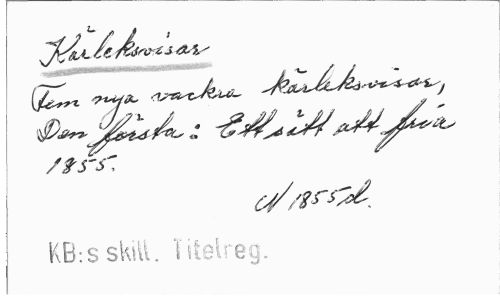 Kärleksvisar
Fem nya vackra kärleksvisar,
Den första: Ett sätt att fria
1855.
N 1855d.
KB:s skill. Titelreg.